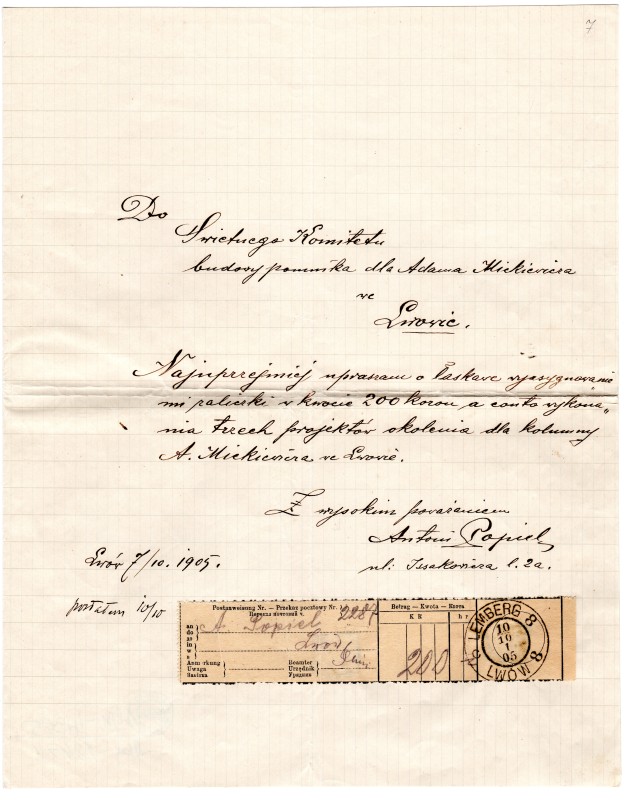 7
Do
Swietnego Komitetu
budowy pomnika dla Adama Mickiewicza
we
Lwowie.
Najuprzejmiej upraszam o łaskawe wyasygnowanie
mi zaliczki w kwocie 200 koron a conto wykona„
nia trzech projektów okolenia dla kolumny
A. Mickiewicza we Lwowie.
Z wysokim poważaniem
Antoni Popiel
ul: Issakowicza l. 2a.
Lwów 7/10. 1905.
posłałem 10/10
Postanweisung Nr. — Przekaz pocztowy Nr.
2287
an do
A. Popiel
in w
Lwów
Anmerkung Uwaga
Beamter Urzędnik
Betrag — Kwota — Квота
K K
h
200
LEMBERG 8
10
10
05
LWÓW 8